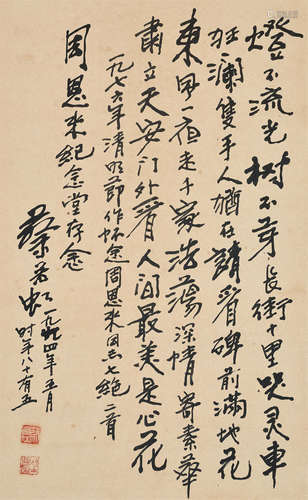 燈不流光树不芽長街十里哭灵車
狂瀾雙手人猶在請看碑前滿地花
東風一夜走千家浩蕩深情寄素華
肅立天安门外看人間最美是心花
一九七六年清明節作怀念周恩来同志七絕二首
周恩来紀念堂存念
蔡若虹一九九四年五月
时年八十有五